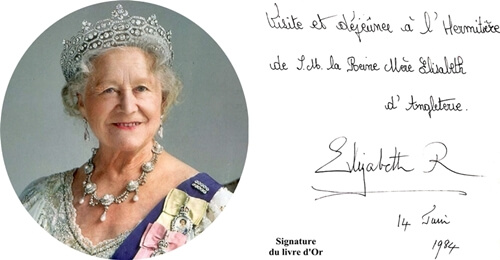 Visite et déjeûner à l'Hermitière
de S.M. la Reine Mère Elisabeth
d'Angleterie.
Elizabeth R
14 Juin
1984
Signature
du livre d'Or